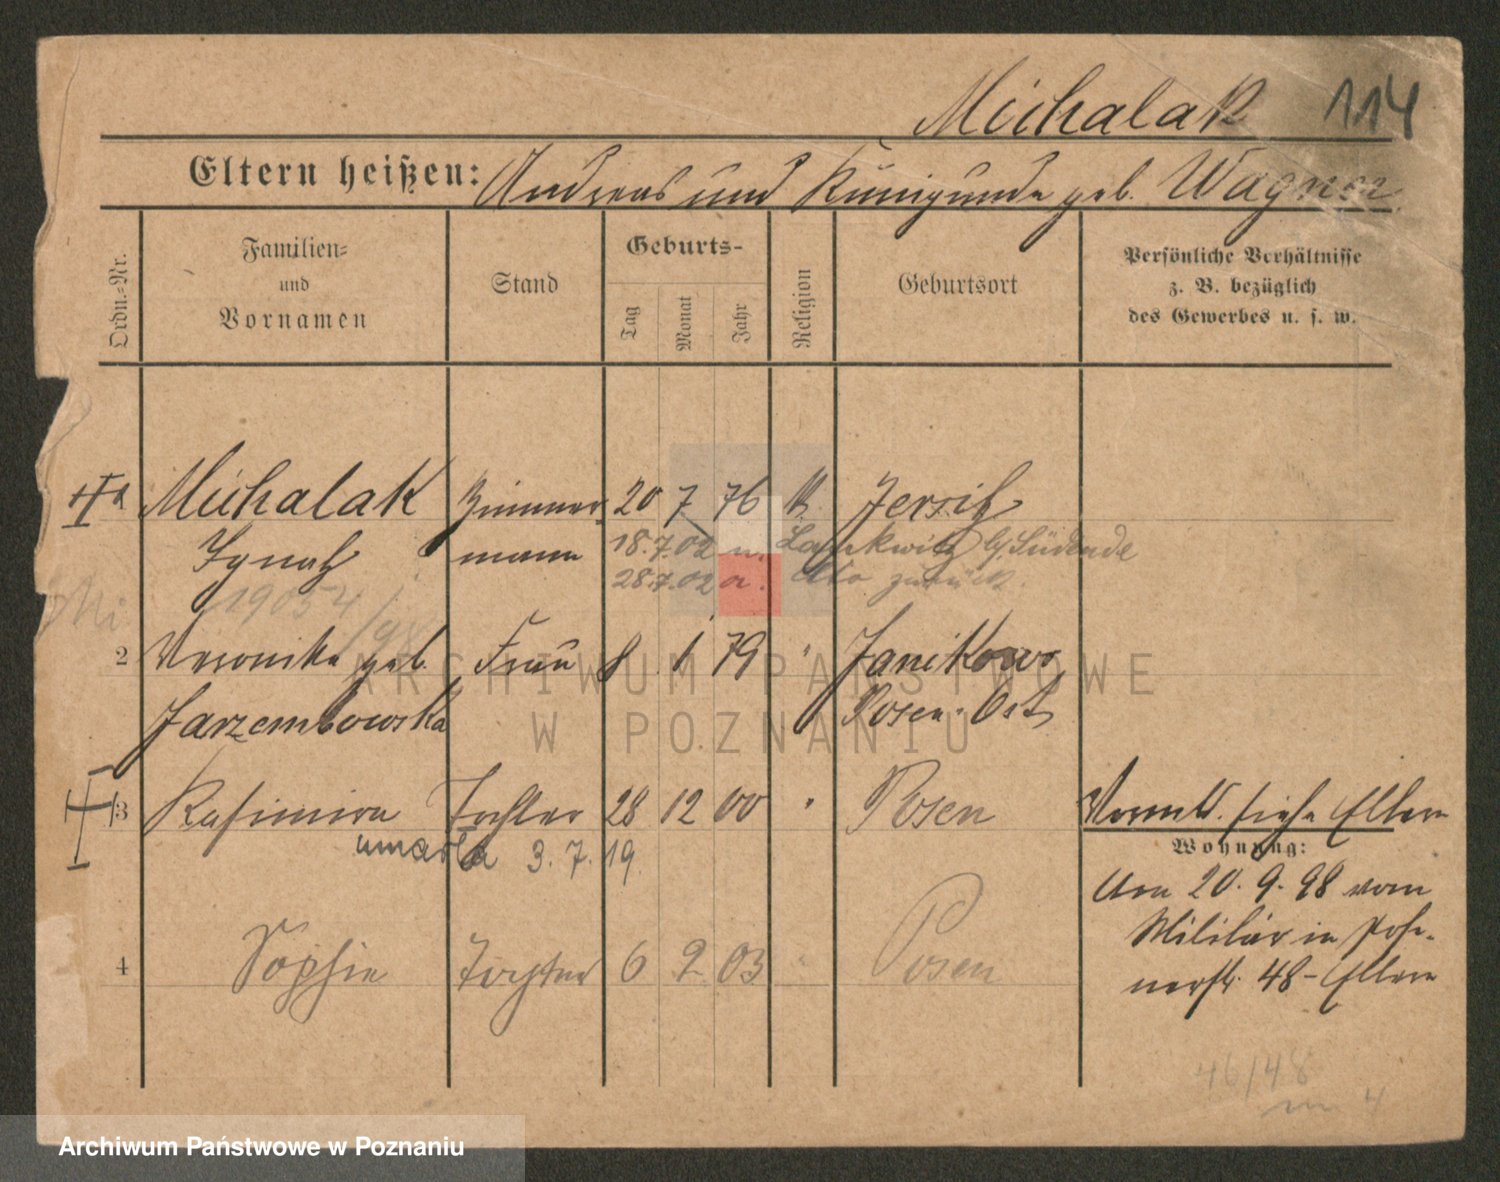 Michalak 114
Eltern heißen: Andreas und Kunigunde geb. Wagner
Ordn.-Nr.
Familien-
und
Vornamen
Stand
Geburts-
Tag
Monat
Jahr
Religion
Geburtsort
Persönliche Verhältnisse
z. B. bezüglich
des Gewerbes u. s. w.
Michalak Zimmer- 20 7 76 k. Jersitz
Ignatz mann 18.7.02 n. Lankwitz b/Südende
28.7.02 a. dto zurück.
19054/98
2 Veronika geb. Frau 8 1 79 " Janikowo
Jarzembowska Posen-Ost
3 Kasimira Tochter 28 12 00 " Posen
umarła 3. 7. 19.
4 Sophie Tochter 6 2 03 " Posen
Vormld. siehe Eltern
Wohnung:
Am 20. 9. 98 vom
Militär in Pose-
nerstr. 48 - Eltern
46/48
4
ARCHIWUM PAŃSTWOWE
W POZNANIU
Archiwum Państwowe w Poznaniu